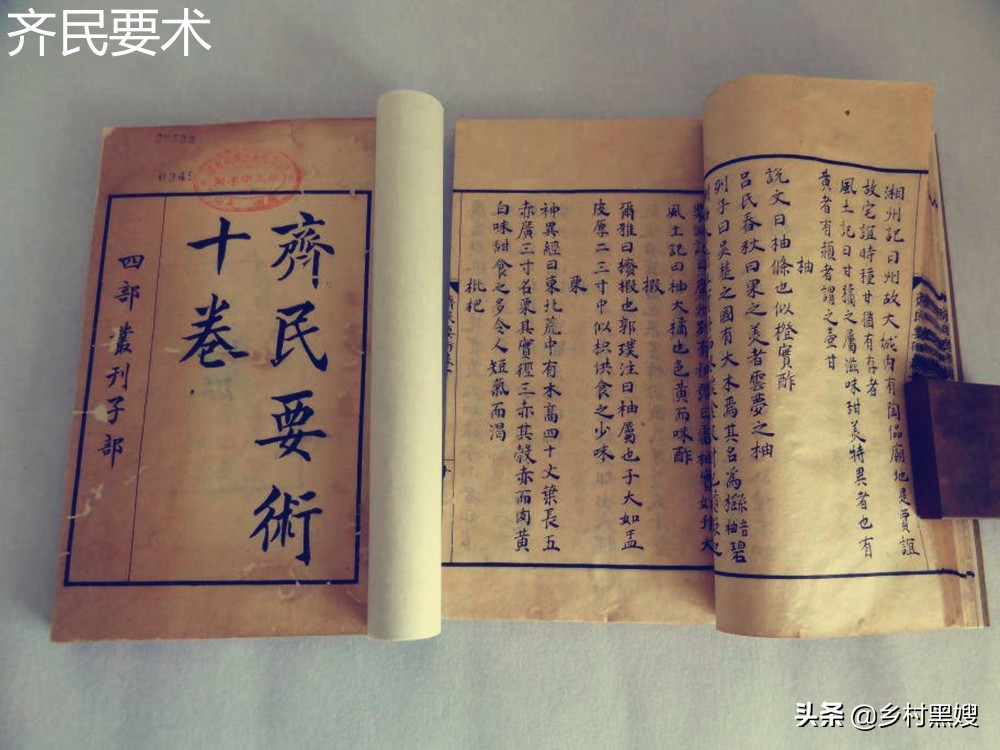 齐民要术
0349
齊民要術
十卷
四部叢刊子部
湘州記曰州故大城内有陶侃廟地是賈誼
故宅誼時種甘猶有存者
風土記曰甘橘之屬滋味甜美特異者也有
黄者有赬者謂之壺甘
柚
說文曰柚條也似橙實酢
吕氏春秋曰果之美者雲夢之柚
列子曰吳楚之國有大木焉其名爲櫾音柚碧
風土記曰柚大橘也色黄而味酢
椵
爾雅曰櫠椵也郭璞注曰柚屬也子大如盂
皮厚二三寸中似枳供食之少味
栗
神異經曰東北荒中有木高四十丈葉長五
赤廣三寸名栗其實徑三赤其殼赤而肉黄
白味甜食之多令人短氣而渴
枇杷
头条 @乡村黑嫂